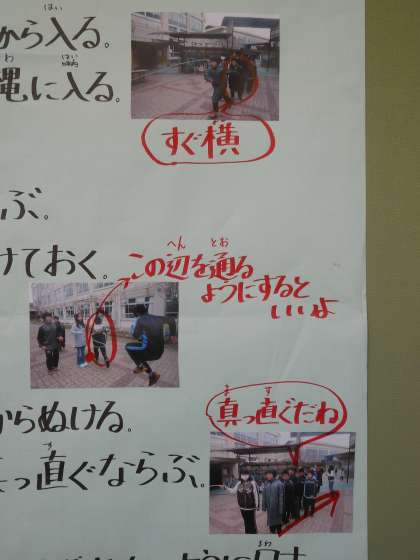 から入る。
はい
縄に入る。
なわ はい
すぐ横
ぶ。
けておく。
この辺を通る
へん とお
ようにすると
いいよ
からぬける。
真っ直ぐだね
ま す
真っ直ぐならぶ。
す